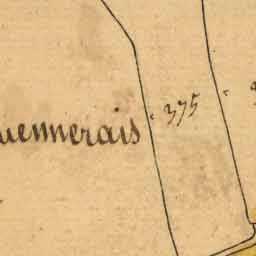 uennerais
375